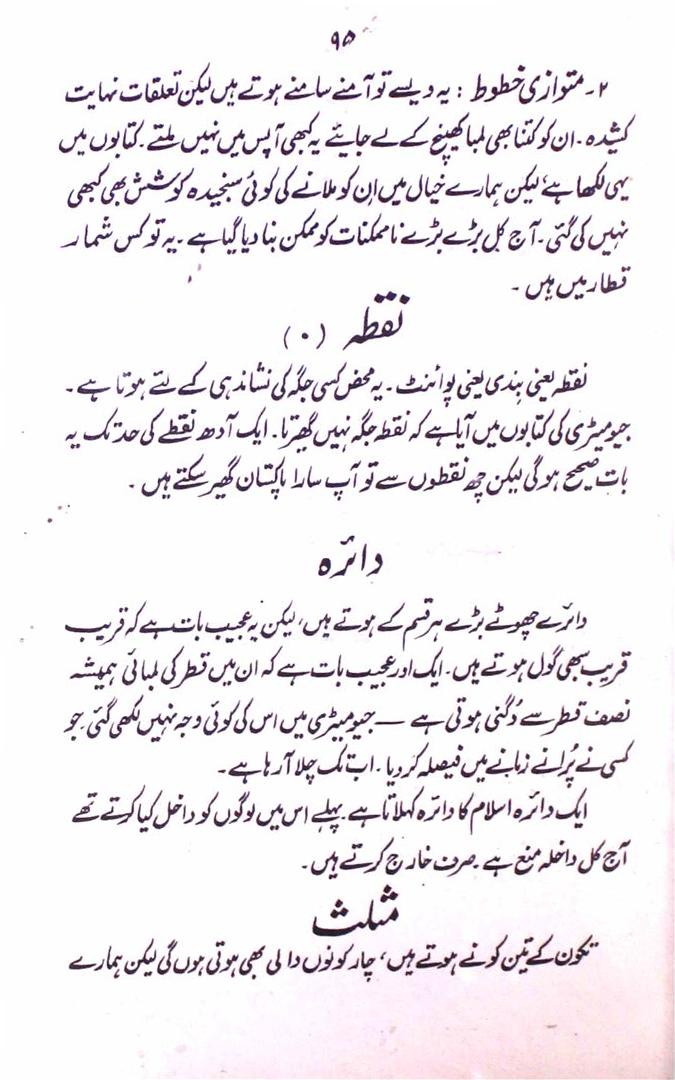 ۹۵
۲۔ متوازی خطوط : یہ ویسے تو آمنے سامنے ہوتے ہیں لیکن تعلقات نہایت
کشیدہ۔ ان کو کتنا بھی لمبا کھینچ کے لے جایئے یہ کبھی آپس میں نہیں ملتے۔ کتابوں میں
یہی لکھا ہے، لیکن ہمارے خیال میں ان کو ملانے کی کوئی سنجیدہ کوشش بھی کبھی
نہیں کی گئی۔ آج کل بڑے بڑے ناممکنات کو ممکن بنا دیا گیا ہے۔ یہ تو کس شمار
قطار میں ہیں۔
نقطہ (۰)
نقطہ یعنی بندی یعنی پوائنٹ۔ یہ محض کسی جگہ کی نشاندہی کے لئے ہوتا ہے۔
جیومیٹری کی کتابوں میں آیا ہے کہ نقطہ جگہ نہیں گھیرتا۔ ایک آدھ نقطے کی حد تک یہ
بات صحیح ہوگی لیکن چھ نقطوں سے تو آپ سارا پاکستان گھیر سکتے ہیں۔
دائرہ
دائرے چھوٹے بڑے ہر قسم کے ہوتے ہیں، لیکن یہ عجیب بات ہے کہ قریب
قریب سبھی گول ہوتے ہیں۔ ایک اور عجیب بات ہے کہ ان میں قطر کی لمبائی ہمیشہ
نصف قطر سے دُگنی ہوتی ہے — جیومیٹری میں اس کی کوئی وجہ نہیں لکھی گئی۔ جو
کسی نے پُرانے زمانے میں فیصلہ کر دیا۔ اب تک چلا آ رہا ہے۔
ایک دائرہ اسلام کا دائرہ کہلاتا ہے پہلے اس میں لوگوں کو داخل کیا کرتے تھے
آج کل داخلہ منع ہے۔ صرف خارج کرتے ہیں۔
مثلث
تکون کے تین کونے ہوتے ہیں، چار کونوں والی بھی ہوتی ہوں گی لیکن ہمارے